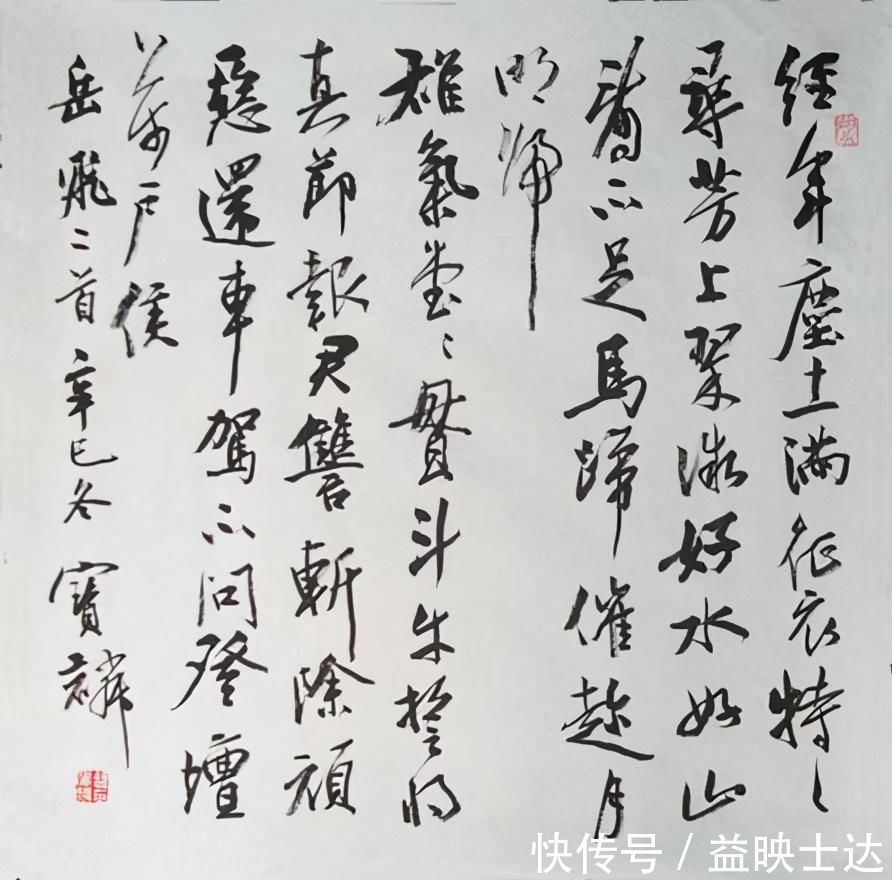 經年塵土滿征衣特〻
尋芳上翠微好水好山
看不足馬蹄催趁月
明歸
雄氣堂〻貫斗牛誓將
真節報君讐斬除頑
惡還車駕不問登壇
萬戶侯
岳飛二首辛巳冬寶
快传号 / 益映士达